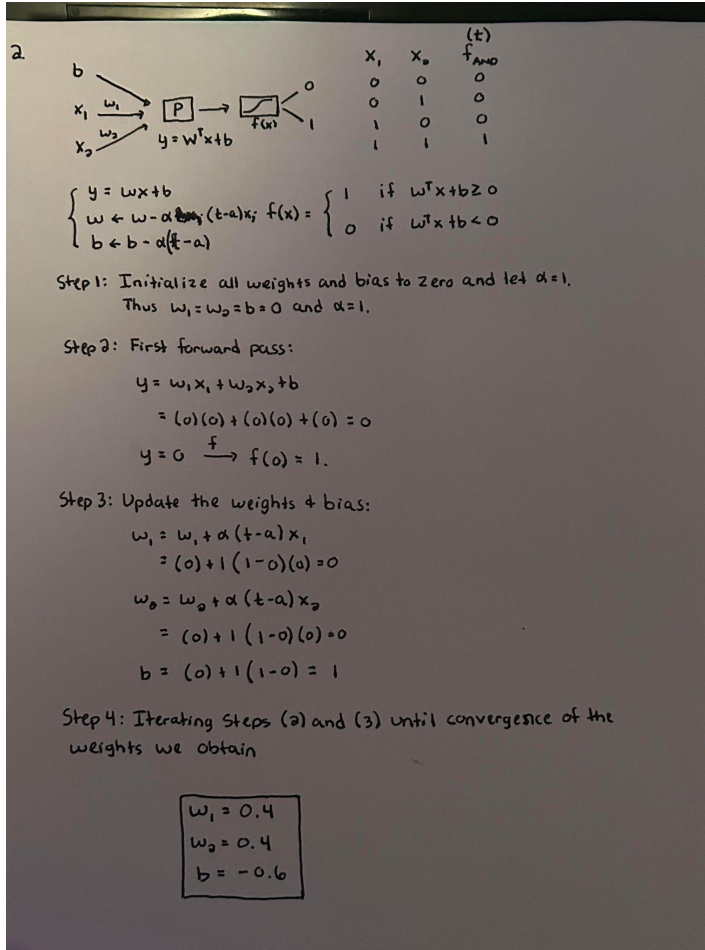 2.
b
x₁ w₁
x₂ w₂
P
y = wᵀx+b
f(x)
0
1
(t)
x₁ x₂ f_AND
0 0 0
0 1 0
1 0 0
1 1 1
y = wx+b
w ← w-α (t-a)xᵢ
b ← b-α(t-a)
f(x) =
1 if wᵀx+b≥0
0 if wᵀx+b<0
Step 1: Initialize all weights and bias to zero and let α=1.
Thus w₁=w₂=b=0 and α=1.
Step 2: First forward pass:
y = w₁x₁+w₂x₂+b
= (0)(0)+(0)(0)+(0) = 0
y=0 →f f(0) = 1.
Step 3: Update the weights & bias:
w₁ = w₁+α(t-a)x₁
= (0)+1(1-0)(0)=0
w₂ = w₂+α(t-a)x₂
= (0)+1(1-0)(0)=0
b = (0)+1(1-0) = 1
Step 4: Iterating Steps (2) and (3) until convergence of the
weights we obtain
w₁ = 0.4
w₂ = 0.4
b = -0.6